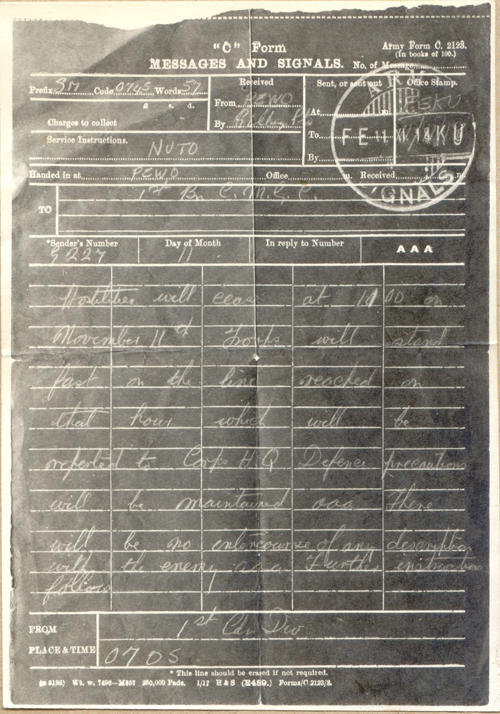 "C" Form
Army Form C. 2123.
(In books of 100.)
MESSAGES AND SIGNALS.
No. of Message
Prefix SM Code 0745 Words 57
Received
Sent, or sent out
Office Stamp.
£ s. d.
From PEWO
At
Charges to collect
By
To
FEKU
Service Instructions.
NUTO
By
SIGNALS
Handed in at PEWO Office m. Received m.
TO
1st Bn C.M.G.C.
*Sender's Number
Day of Month
In reply to Number
AAA
G 227
11
Hostilities will cease at 1100 on
November 11th Troops will stand
fast on the line reached on
that hour which will be
reported to Corps H Q Defence precautions
will be maintained aaa There
will be no intercourse of any description
with the enemy aaa Further instructions
follow
FROM
1st Can Div
PLACE & TIME
0705
* This line should be erased if not required.
Wt. w. 7496—M857 250,000 Pads. 1/17 H & S (E489.) Forms/C.2123/3.